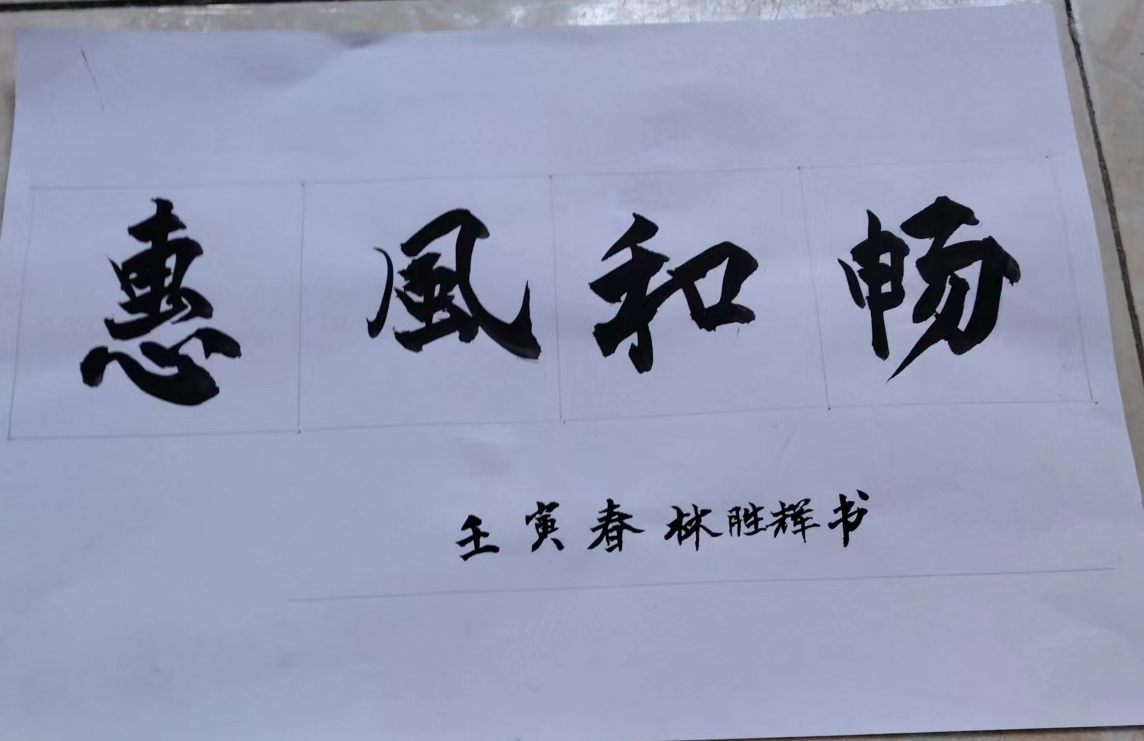 惠風和畅
壬寅春林胜辉书